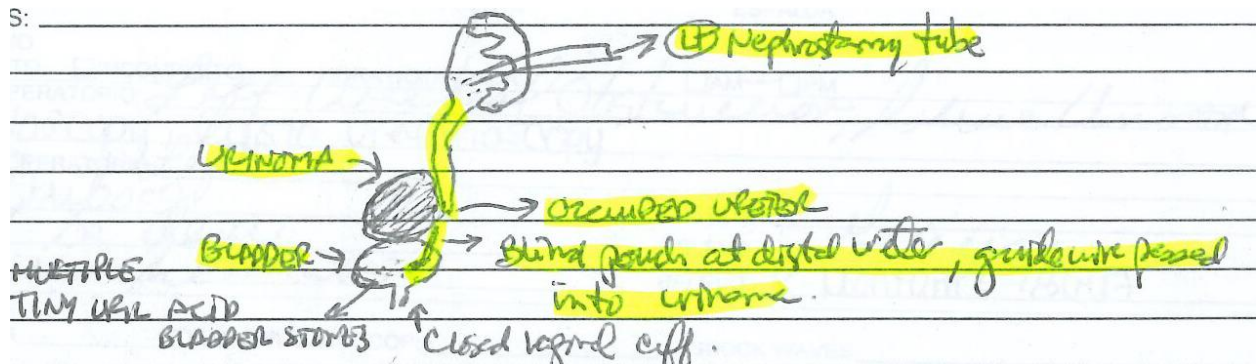 S:
(LT) Nephrostomy tube
URINOMA
OCCLUDED URETER
BLADDER
Blind pouch at distal ureter, guidewire passed
into urinoma.
MULTIPLE
TINY URIC ACID
BLADDER STONES
Closed vaginal cuff